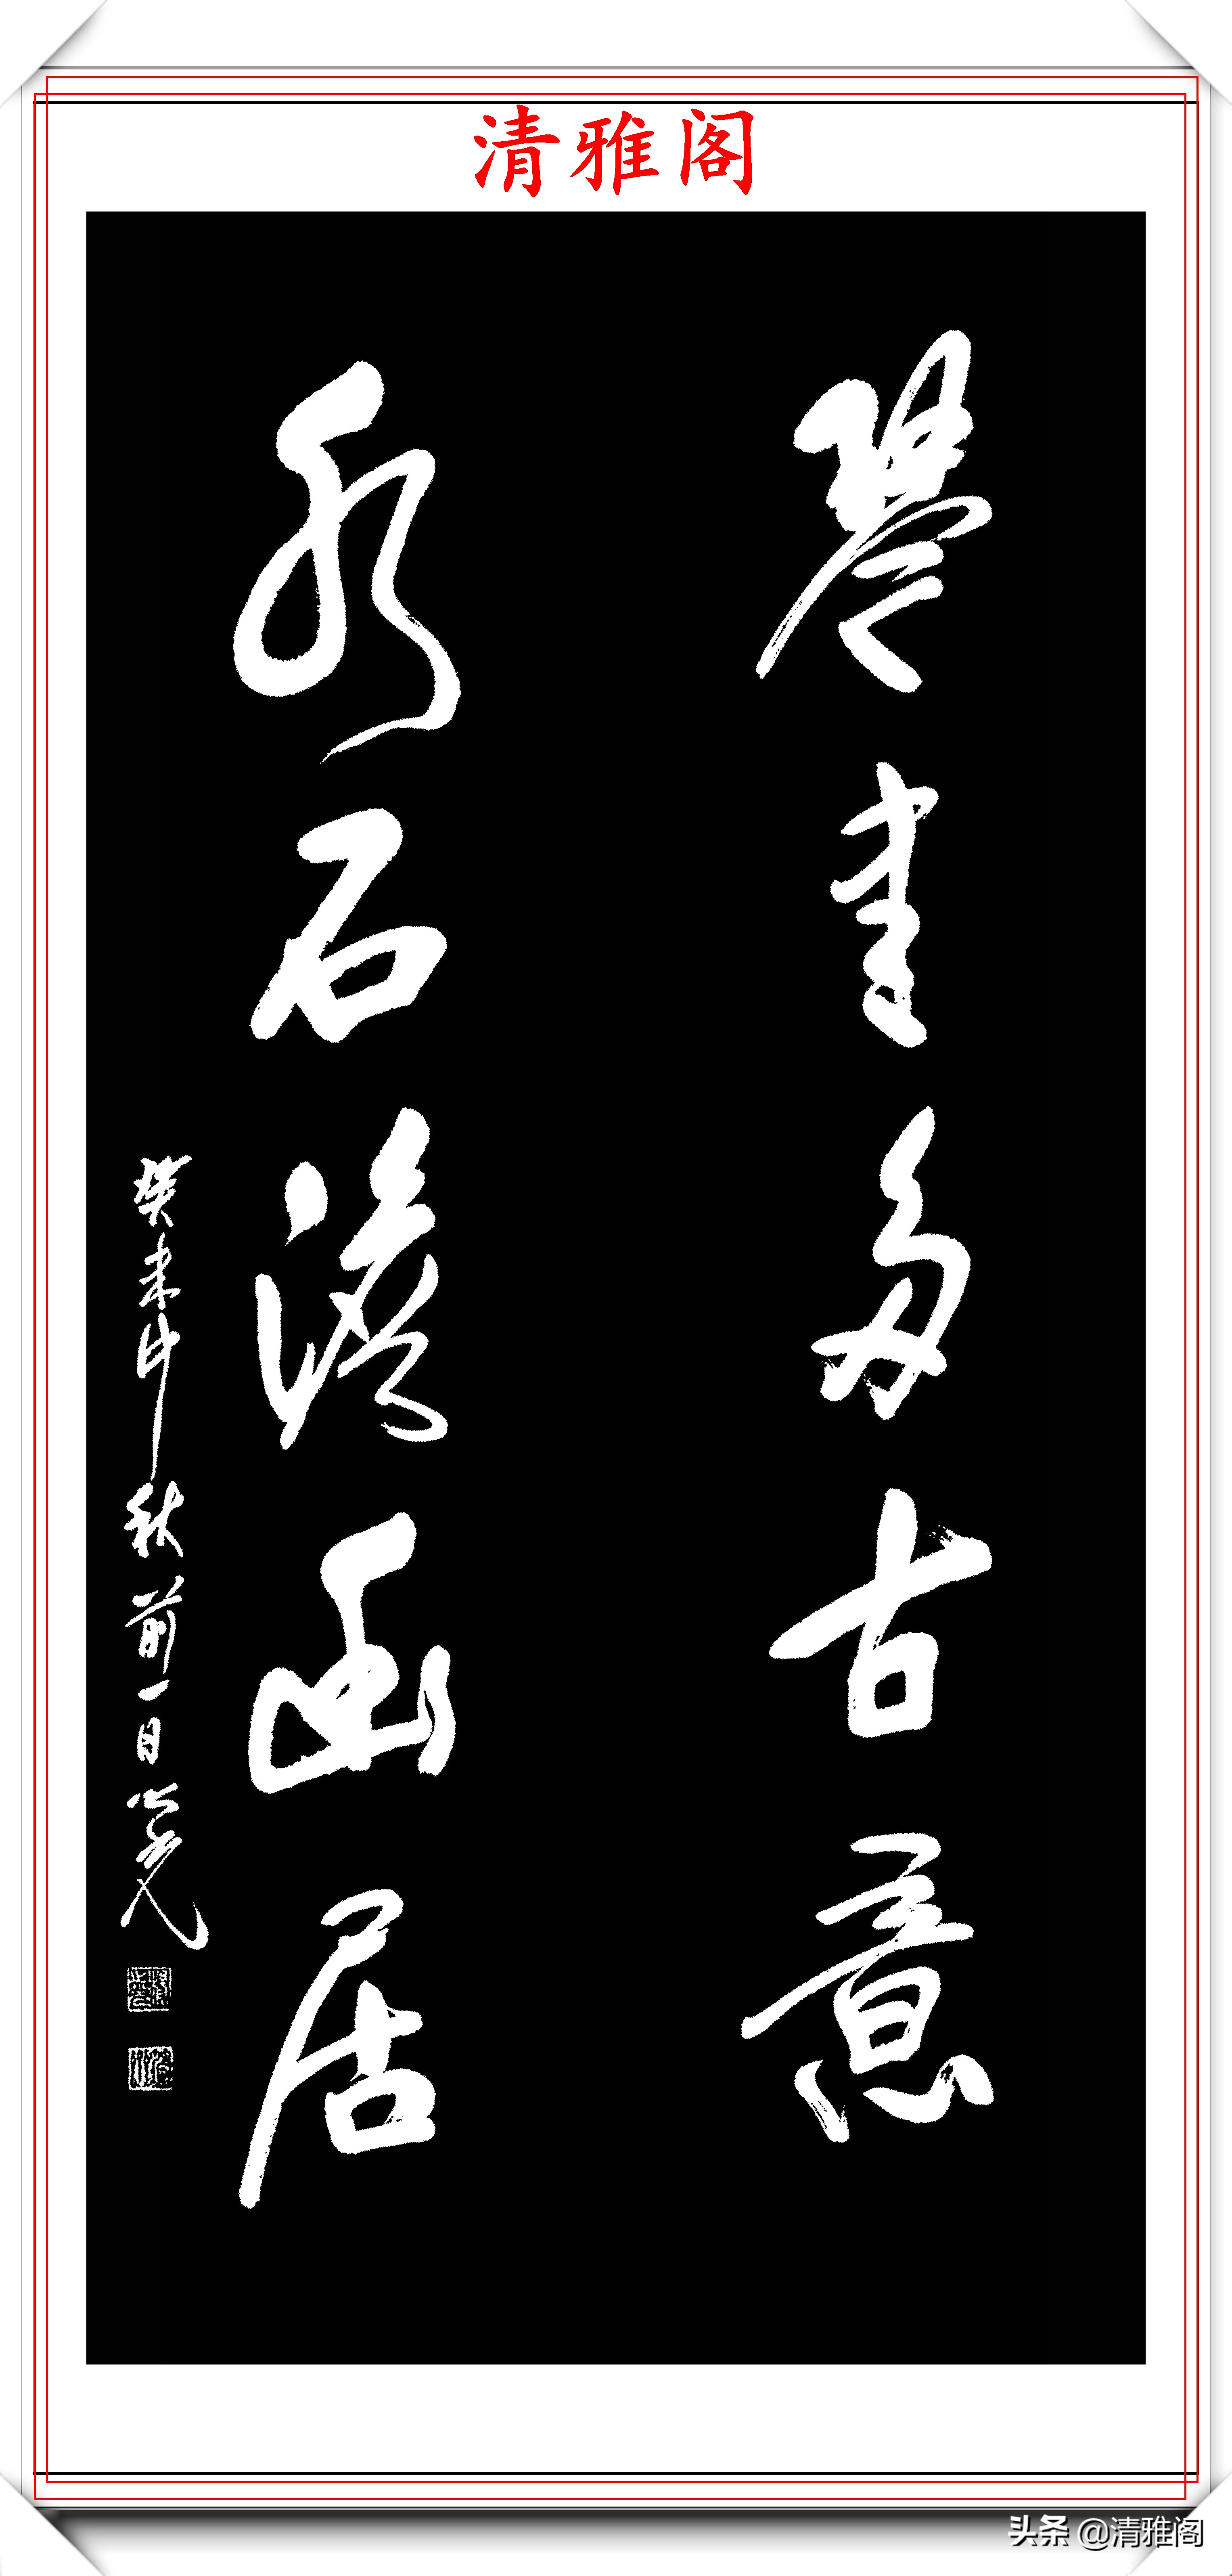 清雅阁
琴書多古意
水石澹幽居
癸未中秋前一日
头条 @清雅阁